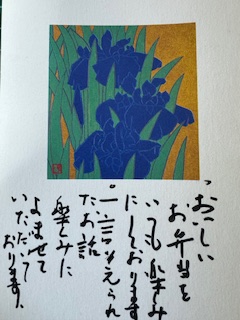 おいしい
お弁当を
いつも楽しみ
にしております
一言そえられ
たお話
楽しみに
よませて
いただいて
おります。